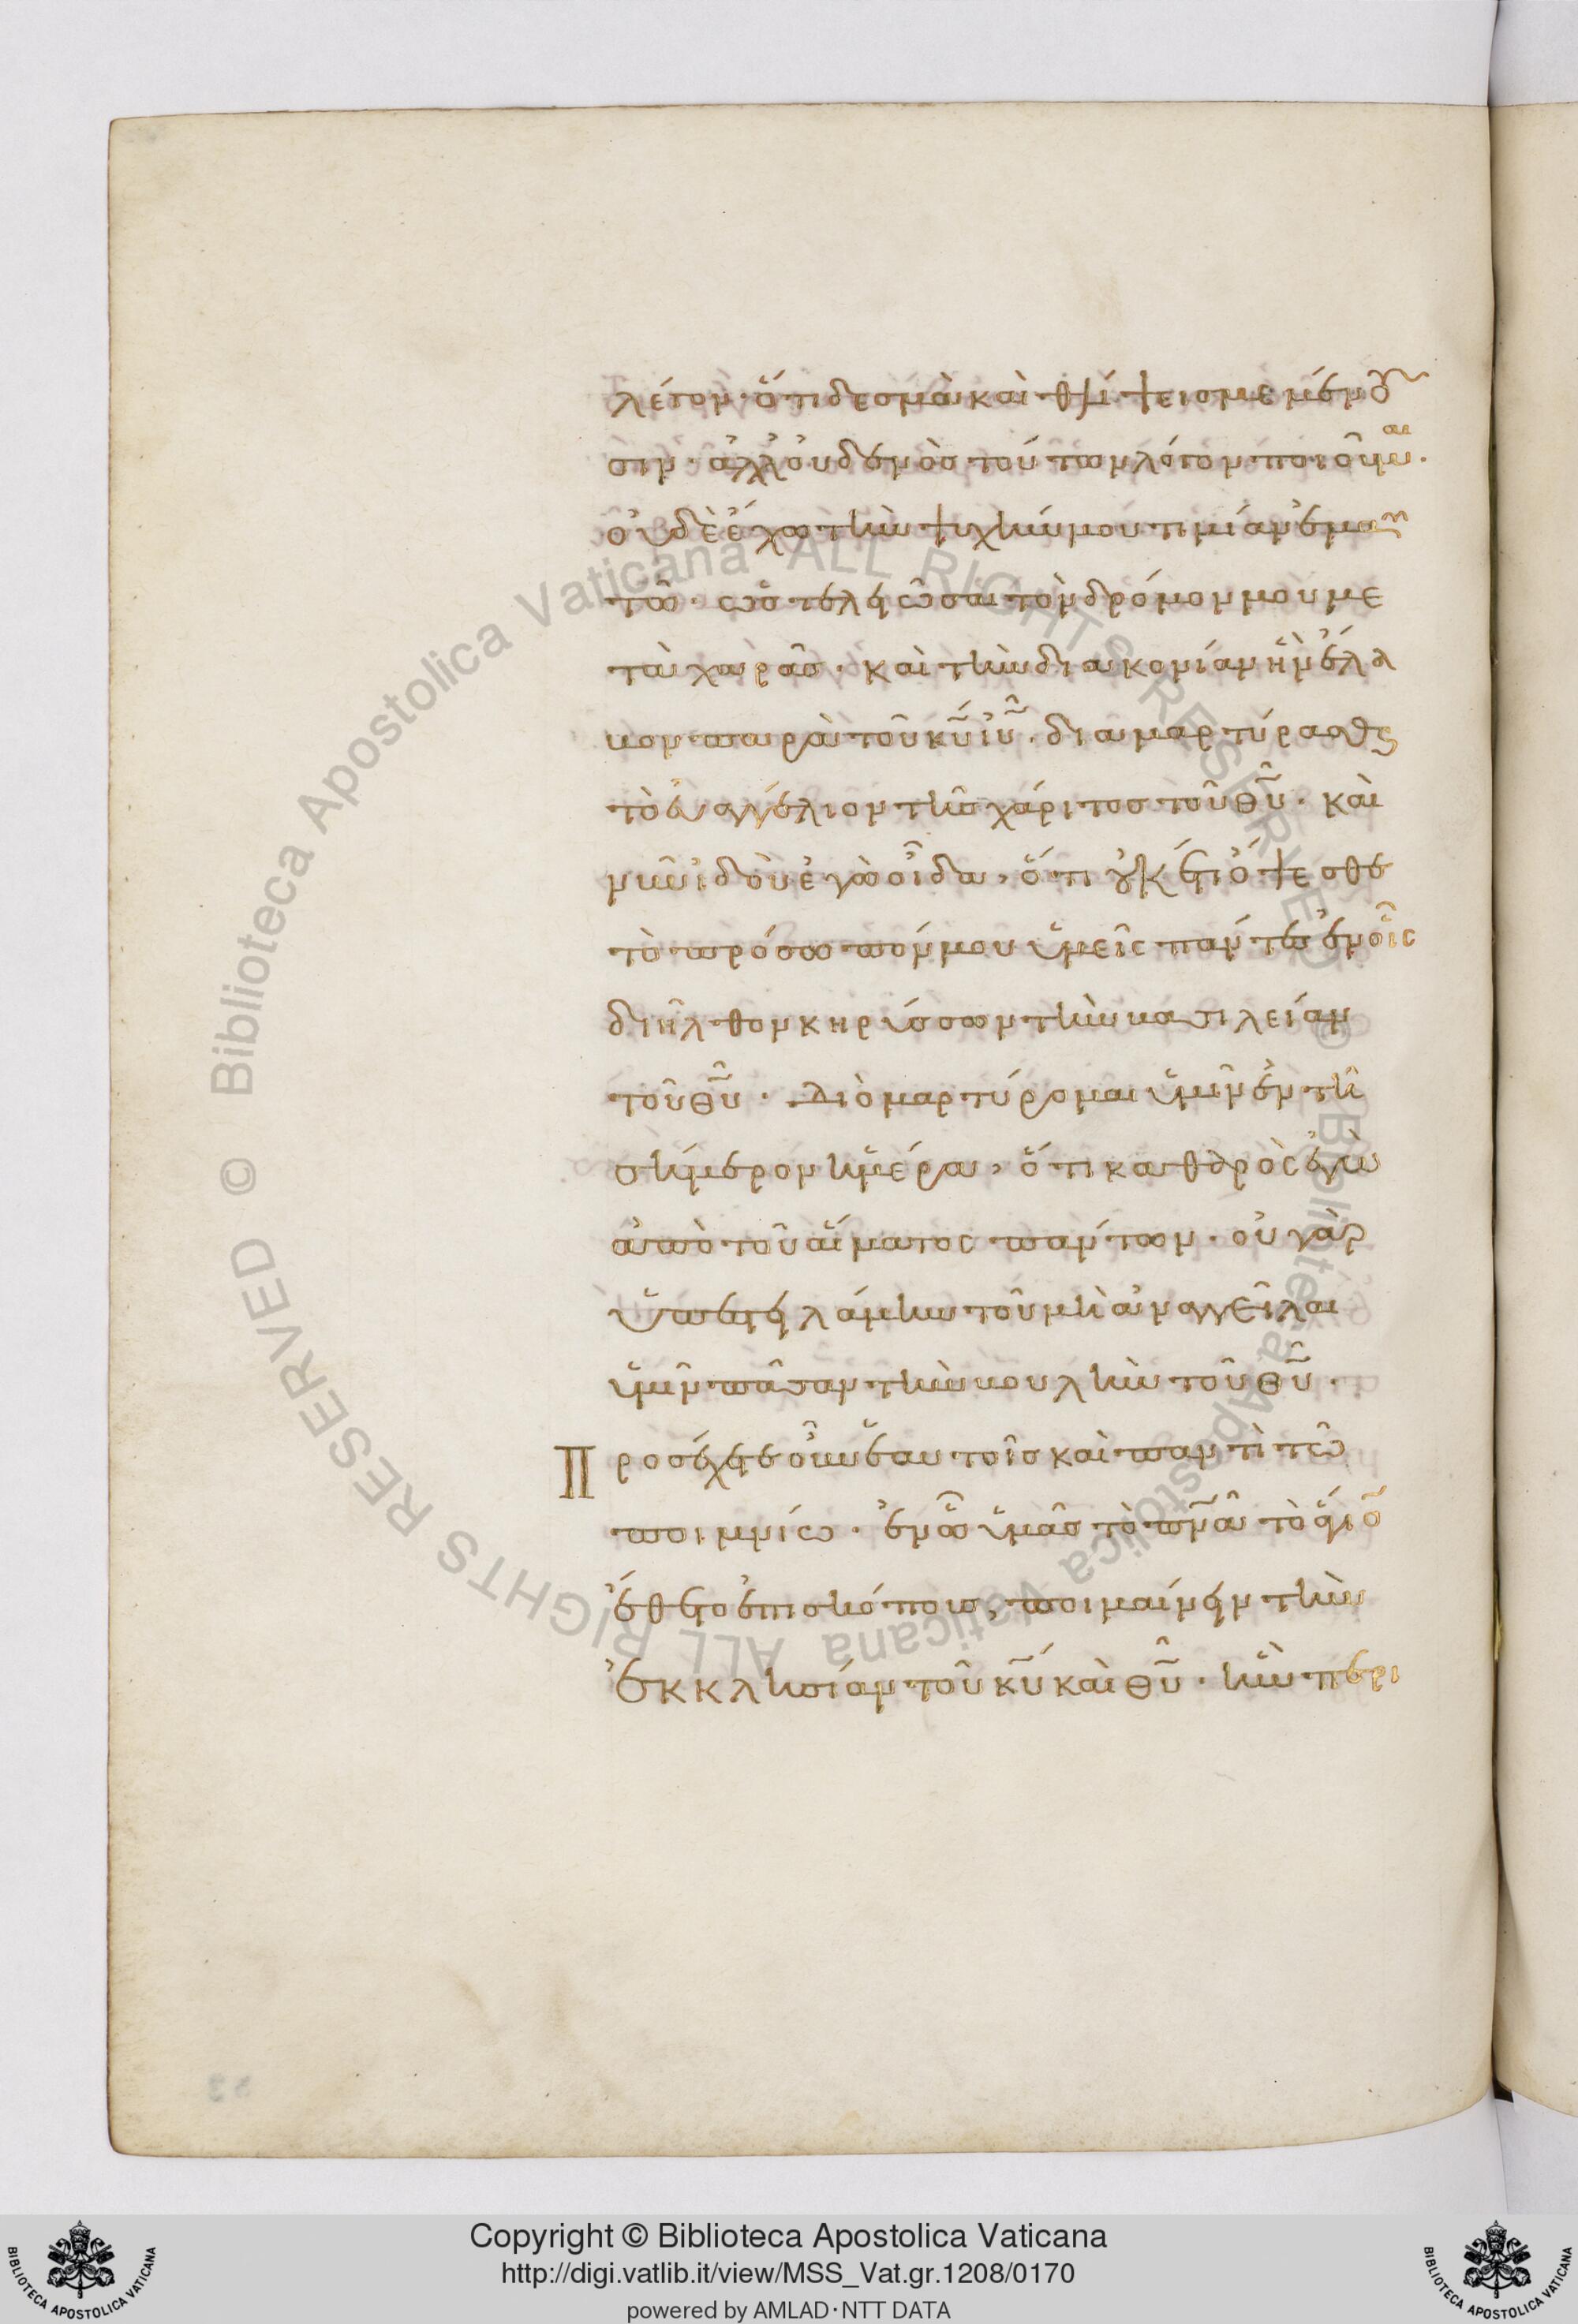 λέγον· ὅτι δεσμὰ καὶ θλίψεις με μένου
σιν· ἀλλ' οὐδενὸς τούτων λόγον ποιοῦμαι·
οὐδὲ ἔχω τὴν ψυχήν μου τιμίαν ἐμαυ
τῶ· ὡς τελειῶσαι τὸν δρόμον μου με
τὰ χαρᾶς· καὶ τὴν διακονίαν ἣν ἔλα
βον παρὰ τοῦ κυ ιυ· διαμαρτύρασθαι
τὸ εὐαγγέλιον τῆς χάριτος τοῦ θυ· καὶ
νῦν ἰδοὺ ἐγὼ οἶδα, ὅτι οὐκ έτι ὄψεσθε
τὸ πρόσωπόν μου ὑμεῖς πάντες ἐν οἷς
διῆλθον κηρύσσων τὴν βασιλείαν
τοῦ θυ· Διὸ μαρτύρομαι ὑμῖν ἐν τῆ
σήμερον ἡμέρα, ὅτι καθαρὸς ἐγὼ
ἀπὸ τοῦ αἵματος πάντων· οὐ γὰρ
ὑπεστειλάμην τοῦ μὴ ἀναγγεῖλαι
ὑμῖν πᾶσαν τὴν βουλὴν τοῦ θυ·
Προσέχετε οὖν ἑαυτοῖς καὶ παντὶ τῶ
ποιμνίω· ἐν ῶ ὑμᾶς τὸ πνα τὸ ἅγιον
ἔθετο ἐπισκόπους, ποιμαίνειν τὴν
ἐκκλησίαν τοῦ κυ καὶ θυ· ἣν περι
Copyright © Biblioteca Apostolica Vaticana
http://digi.vatlib.it/view/MSS_Vat.gr.1208/0170
powered by AMLAD·NTT DATA
BIBLIOTECA APOSTOLICA VATICANA
BIBLIOTECA APOSTOLICA VATICANA
© Biblioteca Apostolica Vaticana ALL RIGHTS RESERVED
© Biblioteca Apostolica Vaticana ALL RIGHTS RESERVED